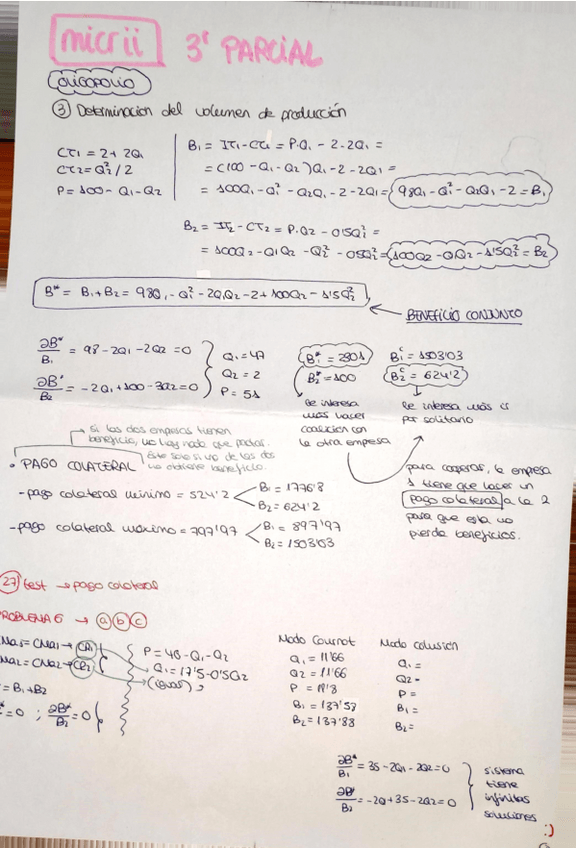 micrii 3º PARCIAL
OLIGOPOLIO
③ Determinación del volumen de producción
CT1 = 2 + 2Q1
CT2 = Q2²/2
P = 100 - Q1 - Q2
B1 = IT1 - CT1 = P·Q1 - 2 - 2Q1 =
= (100 - Q1 - Q2)Q1 - 2 - 2Q1 =
= 100Q1 - Q1² - Q2Q1 - 2 - 2Q1 = 98Q1 - Q1² - Q2Q1 - 2 = B1
B2 = IT2 - CT2 = P·Q2 - 0'5Q2² =
= 100Q2 - Q1Q2 - Q2² - 0'5Q2² = 100Q2 - Q1Q2 - 1'5Q2² = B2
B* = B1 + B2 = 98Q1 - Q1² - 2Q1Q2 - 2 + 100Q2 - 1'5Q2²
BENEFICIO CONJUNTO
∂B*/B1 = 98 - 2Q1 - 2Q2 = 0
∂B*/B2 = -2Q1 + 100 - 3Q2 = 0
Q1 = 47
Q2 = 2
P = 51
B1* = 2301
B2* = 100
le interesa
más hacer
coalición con
la otra empresa
B1ᶜ = 1503'03
B2ᶜ = 624'2
le interesa más ir
por solitario
→ Si las dos empresas tienen
beneficio, no hay nada que pactar.
Este solo si una de las dos
no obtiene beneficio.
• PAGO COLATERAL
- pago colateral mínimo = 524'2
B1 = 1776'8
B2 = 624'2
- pago colateral máximo = 797'97
B1 = 897'97
B2 = 1503'03
para cooperar, la empresa
1 tiene que hacer un
pago colateral a la 2
para que esta no
pierda beneficios.
27 test → pago colateral
PROBLEMA 6 → a b c
Ma1 = CMa1 → CR1
Ma2 = CMa2 → CR2
= B1 + B2
= 0 ; ∂B*/B2 = 0
P = 45 - Q1 - Q2
Q1 = 17'5 - 0'5Q2
(igual)
Modo Cournot
Q1 = 11'66
Q2 = 11'66
P = 19'8
B1 = 137'53
B2 = 137'88
Modo colusión
Q1 =
Q2 =
P =
B1 =
B2 =
∂B*/B1 = 35 - 2Q1 - 2Q2 = 0
∂B*/B2 = -2Q + 35 - 2Q2 = 0
sistema
tiene
infinitas
soluciones
:)